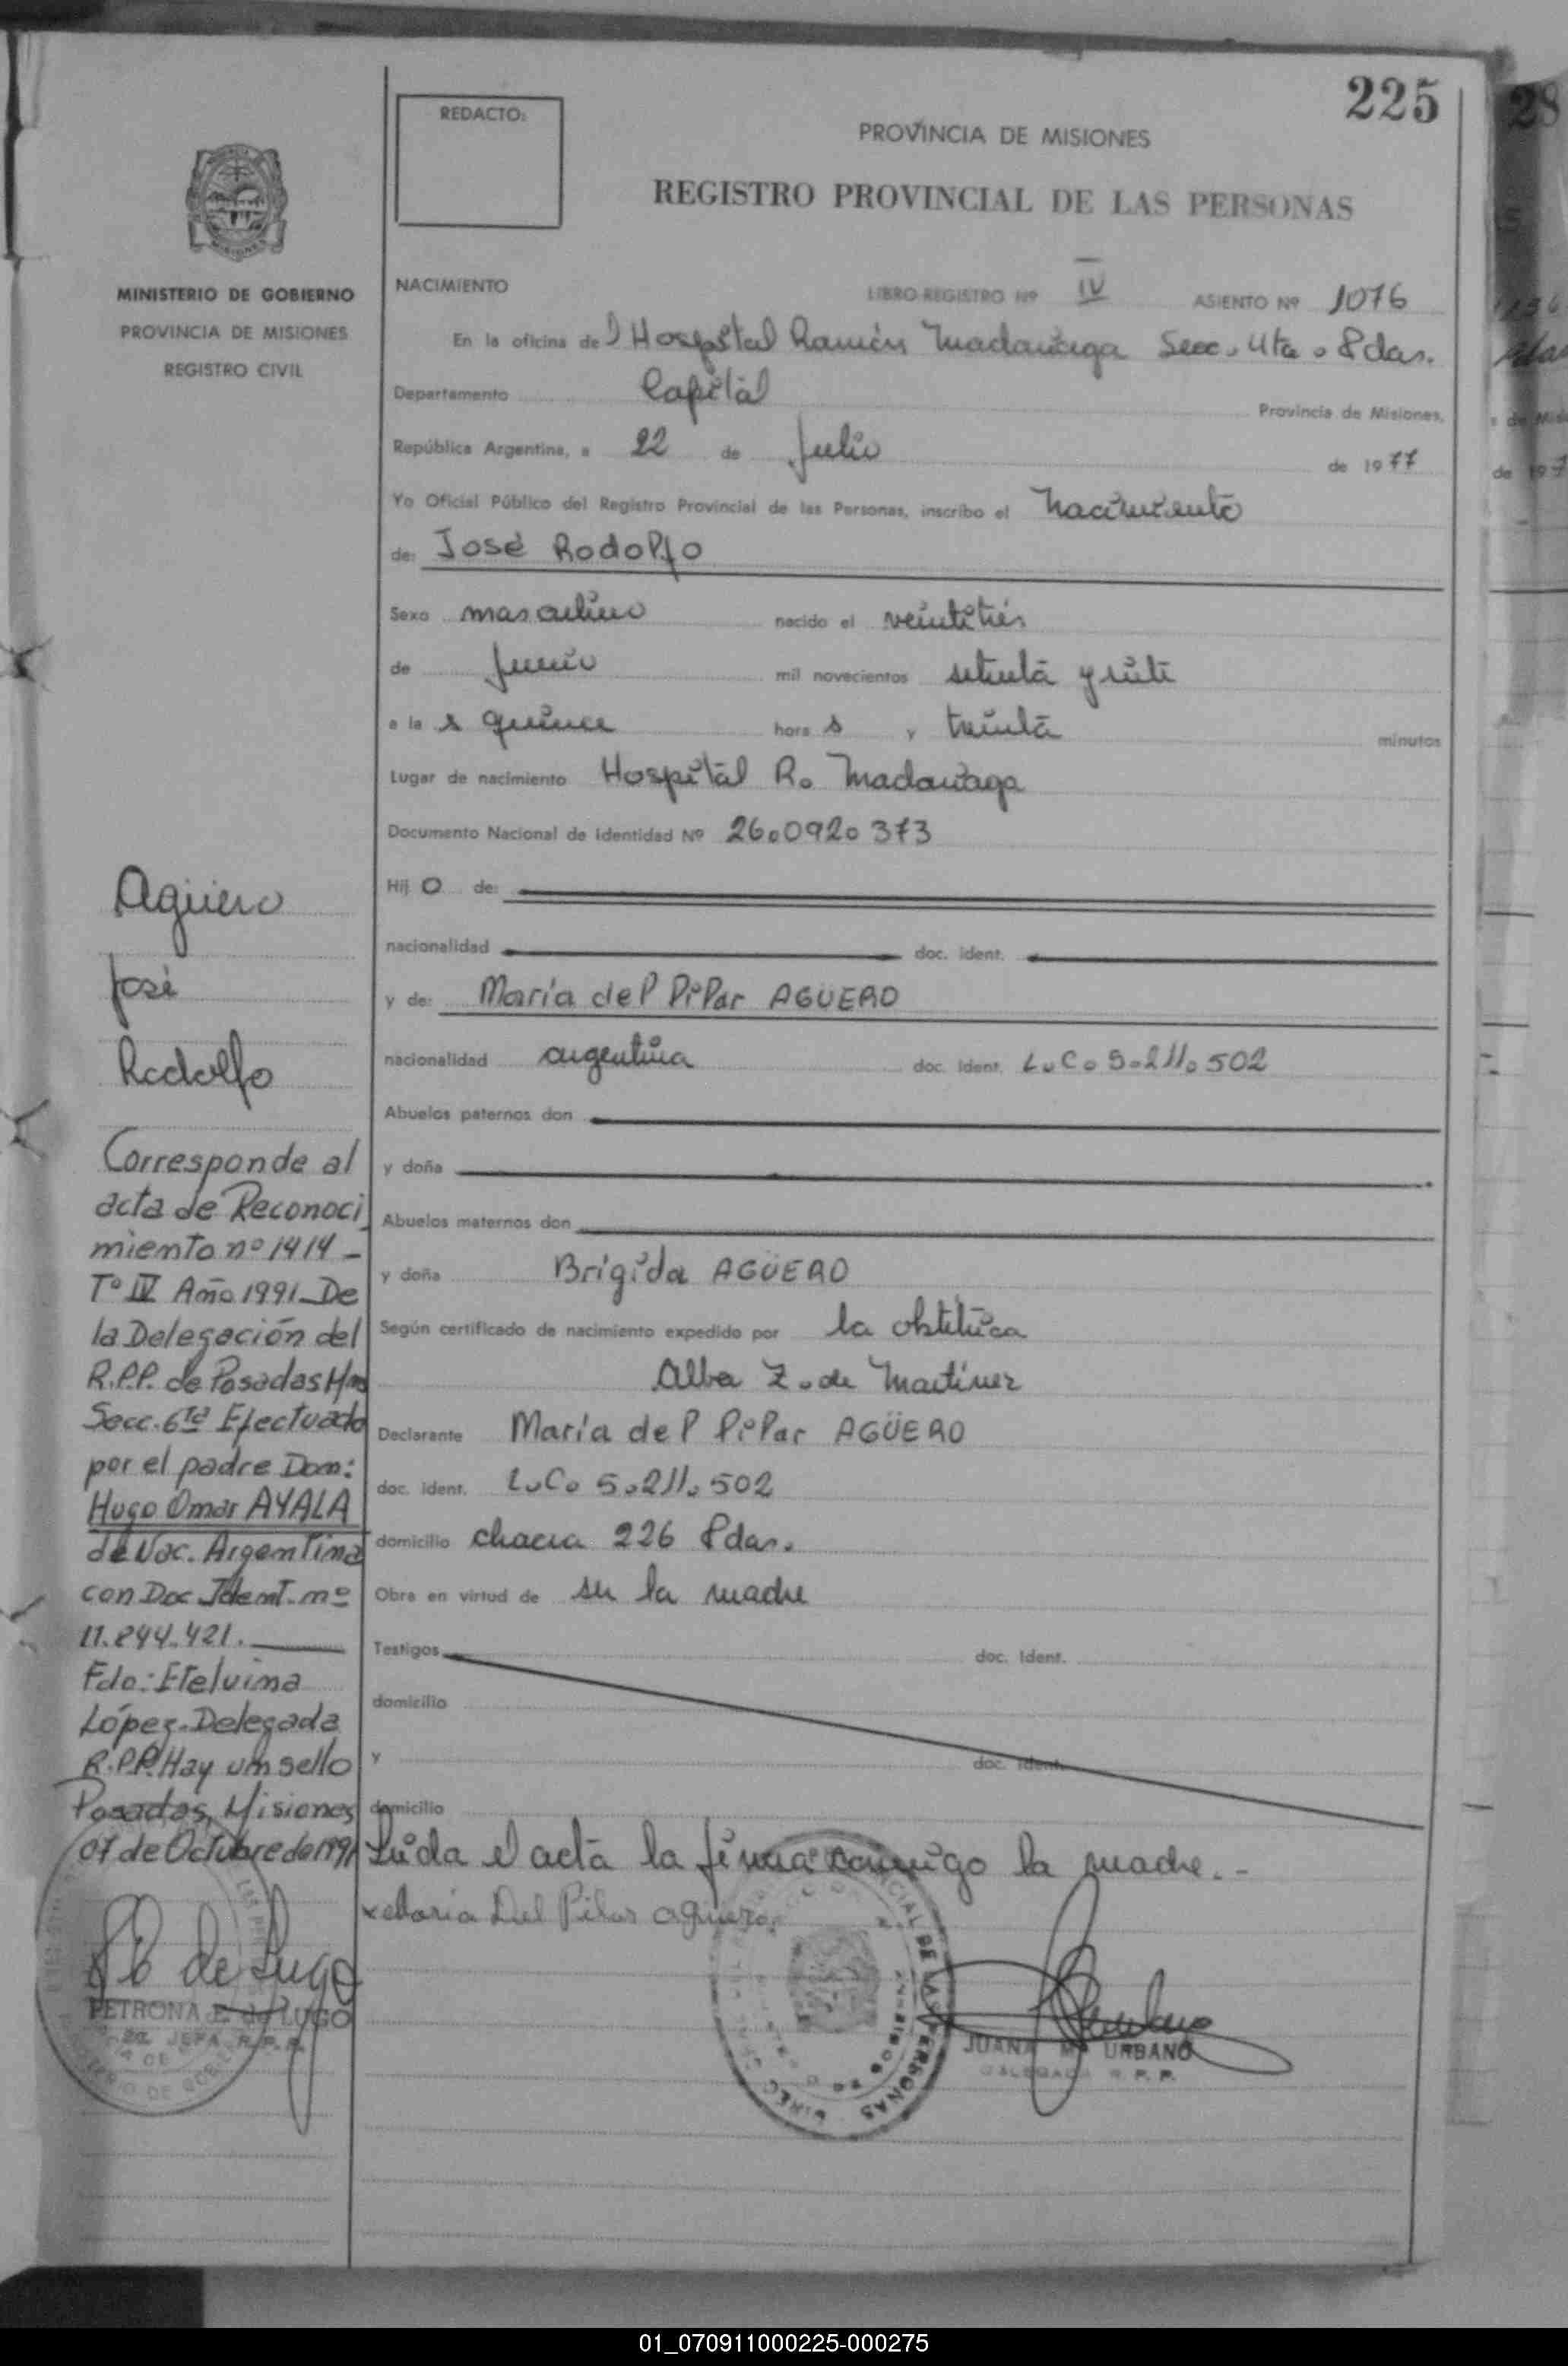 225
REDACTO:
PROVINCIA DE MISIONES
REGISTRO PROVINCIAL DE LAS PERSONAS
MINISTERIO DE GOBIERNO
PROVINCIA DE MISIONES
REGISTRO CIVIL
NACIMIENTO LIBRO REGISTRO Nº IV ASIENTO Nº 1076
En la oficina del Hospital Ramón Madariaga Secc. 4ta. Pdas.
Departamento Capital Provincia de Misiones,
República Argentina, a 22 de Julio de 1977
Yo Oficial Público del Registro Provincial de las Personas, inscribo el nacimiento
de: José Rodolfo
Sexo masculino nacido el veintitrés
de Junio mil novecientos setenta y siete
a las quince horas y treinta minutos
Lugar de nacimiento Hospital R. Madariaga
Documento Nacional de Identidad Nº 26.092.373
Hijo de:
nacionalidad doc. ident.
y de: María del Pilar AGUERO
nacionalidad argentina doc. Ident. L.C. 5.211.502
Abuelos paternos don
y doña
Abuelos maternos don
y doña Brígida AGÜERO
Según certificado de nacimiento expedido por la obstétrica
Alba Z. de Martínez
Declarante María del Pilar AGÜERO
doc. ident. L.C. 5.211.502
domicilio chacra 226 Pdas.
Obra en virtud de ser la madre
Testigos doc. Ident.
domicilio
y doc. ident.
domicilio
Leída el acta la firma conmigo la madre.-
x Maria Del Pilar aguero
JUANA Mª URBANO
DELEGADA R. P. P.
Agüero
José
Rodolfo
Corresponde al
acta de Reconoci
miento nº 1414-
Tº IV Año 1991-De
la Delegación del
R.P.P. de Posadas Mnes
Secc. 6ta Efectuado
por el padre Don:
Hugo Omar AYALA
de Nac. Argentina
con Doc. Ident. nº
11.844.421.
Fdo: Etelvina
López-Delegada
R.P.P. Hay un sello
Posadas, Misiones
07 de Octubre de 1991
PETRONA E. de LUGO
2a JEFA R.P.P.
01_070911000225-000275